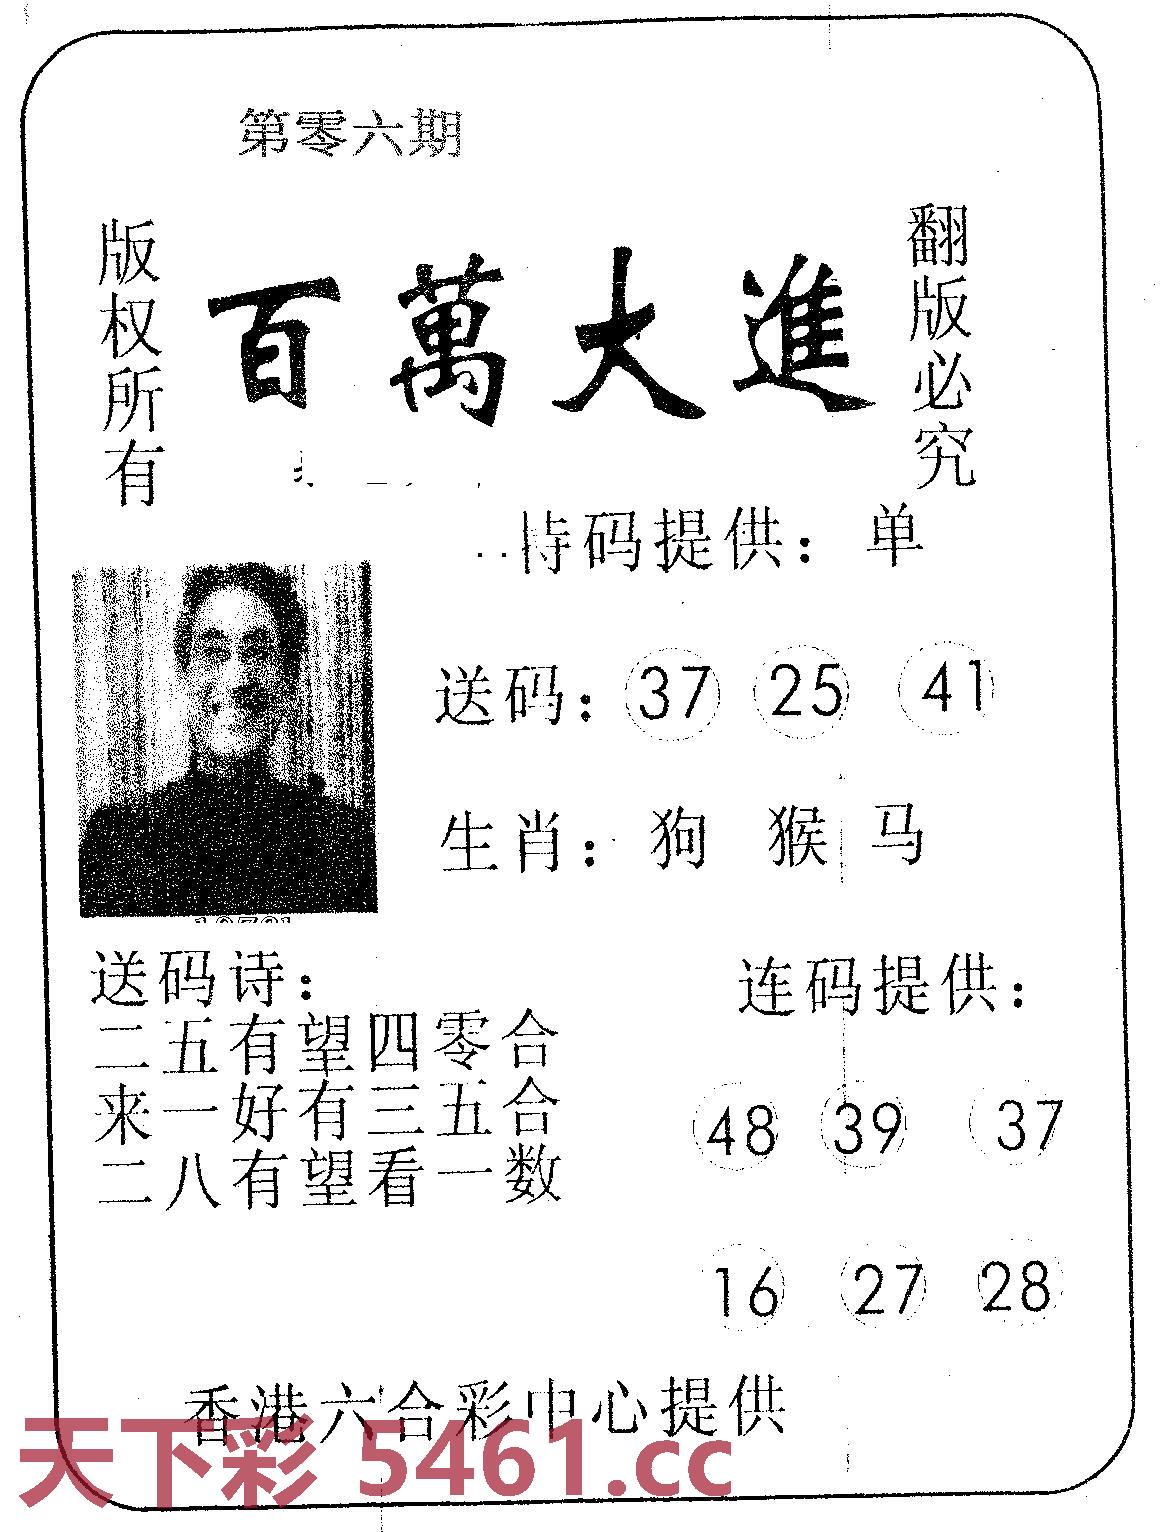 第零六期
版权所有
百萬大進
翻版必究
特码提供：单
送码：37 25 41
生肖：狗 猴 马
送码诗：
二五有望四零合
来一好有三五合
二八有望看一数
连码提供：
48 39 37
16 27 28
香港六合彩中心提供
天下彩 5461.cc